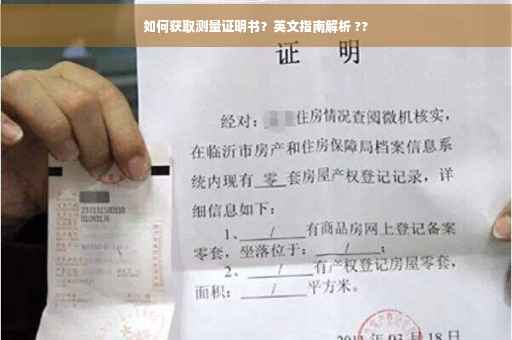 如何获取测量证明书？英文指南解析 ??
证 明
经对：住房情况查阅微机核实，
在临沂市房产和住房保障局档案信息系
统内现有 零 套房屋产权登记记录，详
细信息如下：
1、 / 有商品房网上登记备案
零套，坐落位于： / ；
2、 / 有产权登记房屋零套，
面积： / 平方米。
03 月 18 日